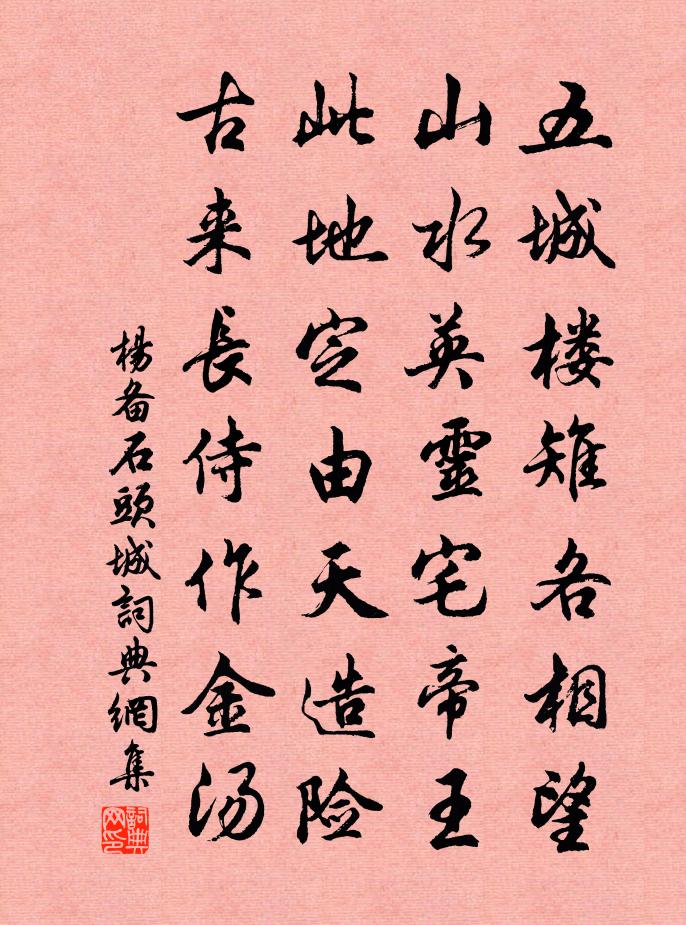 五城楼雉各相望
山水英靈宅帝王
此地定由天造险
古来長侍作金汤
楊备石頭城詞典網集
詞典网印